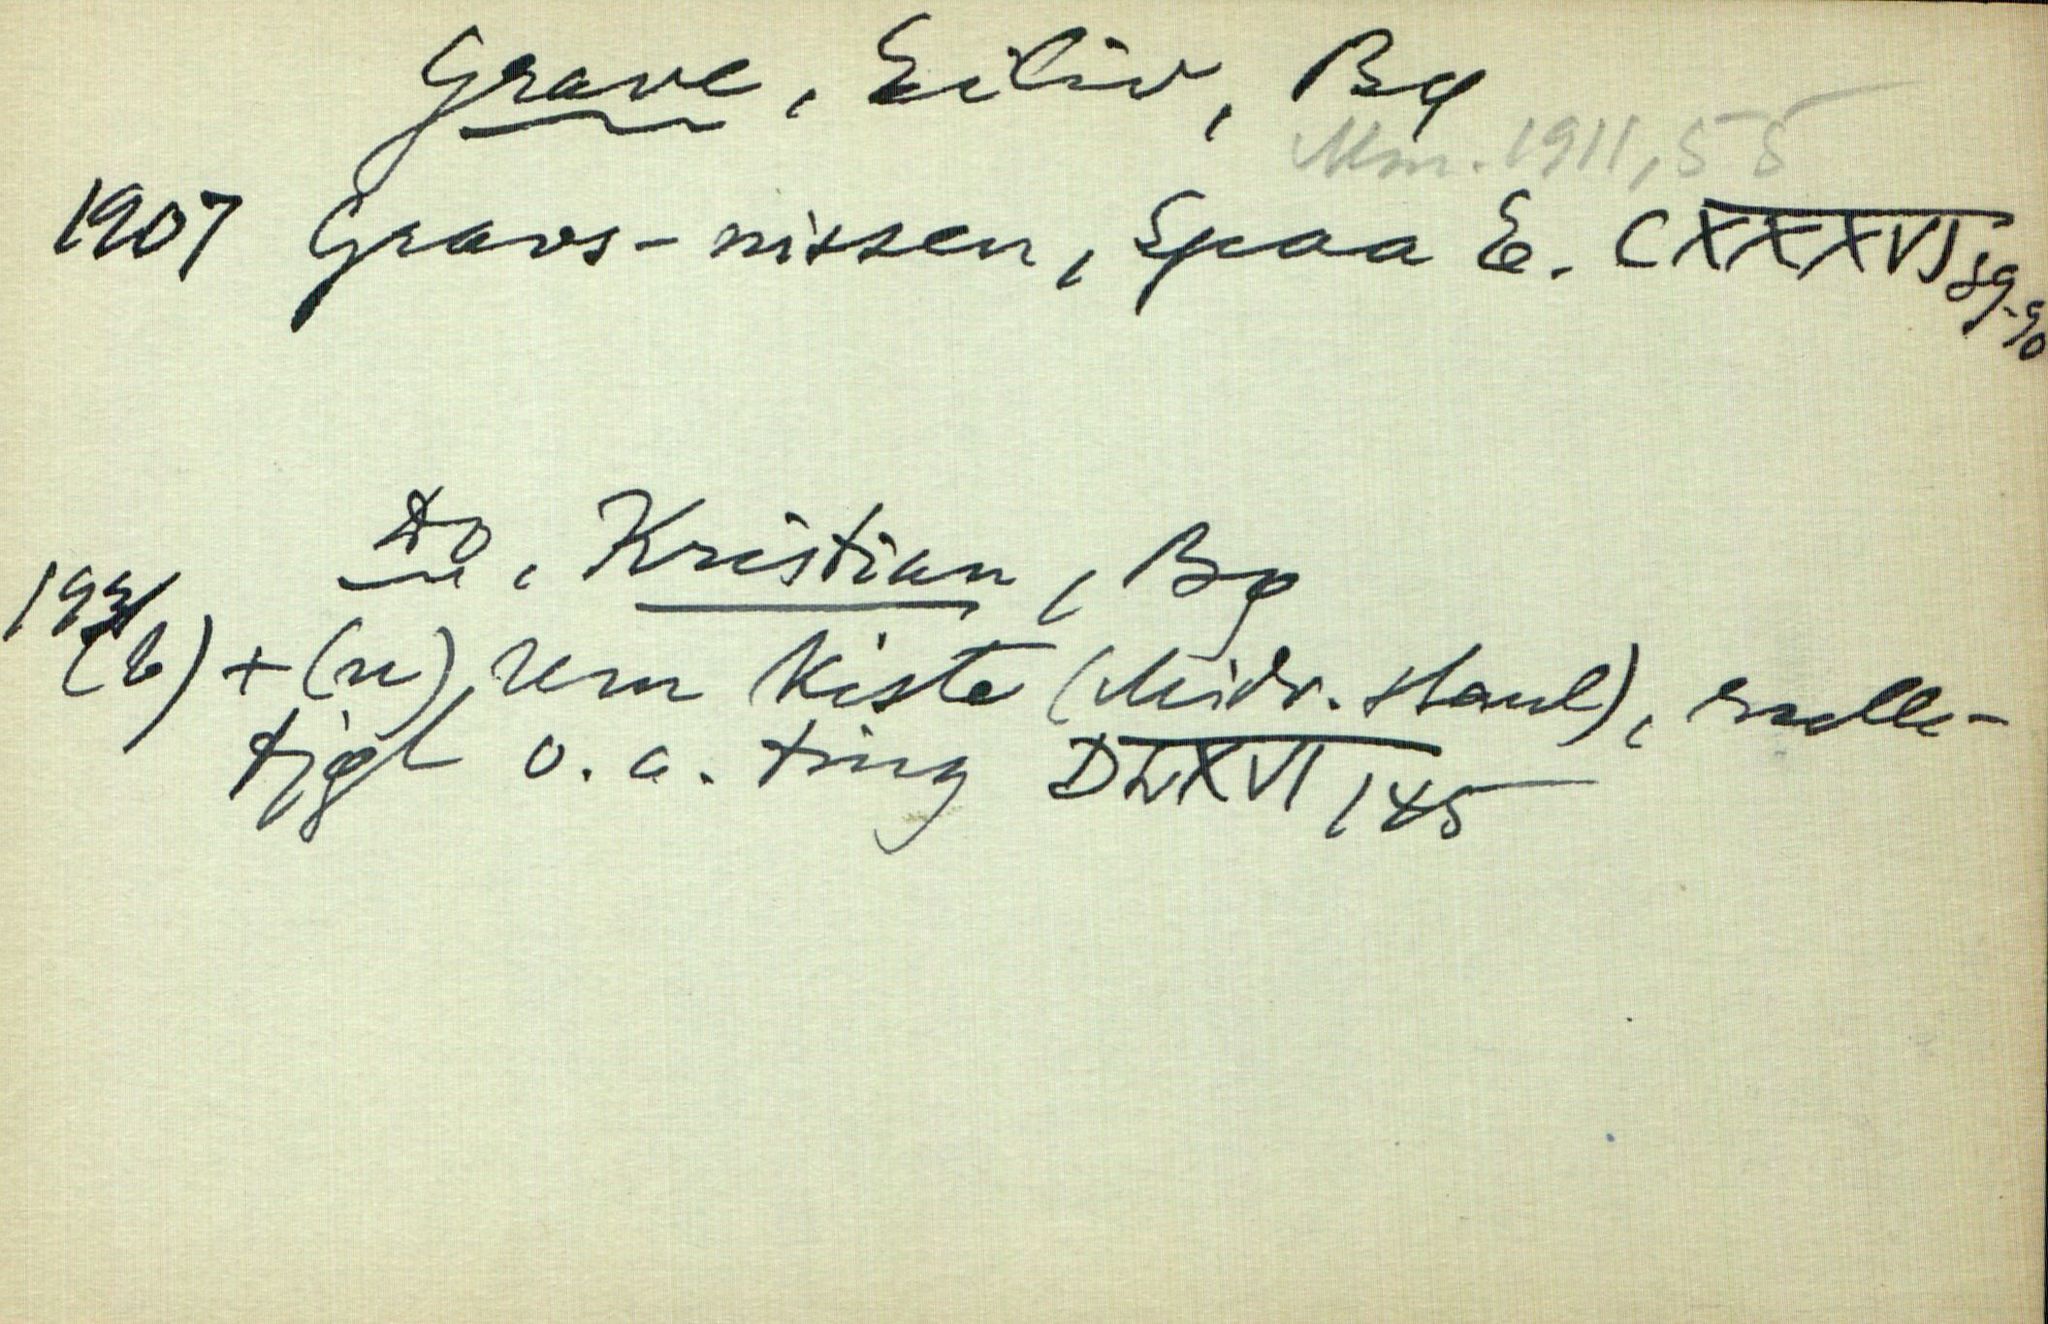 Grave, Eiliv, Bg
Mm. 1911, 55
1907 Gravs-nissen, Spaa E. CXXXVI 89-90
Do, Kristian, Bg
193
(b) + (n) Um Kiste (Midv. Haul), 
o. a. ting DLXVI 145